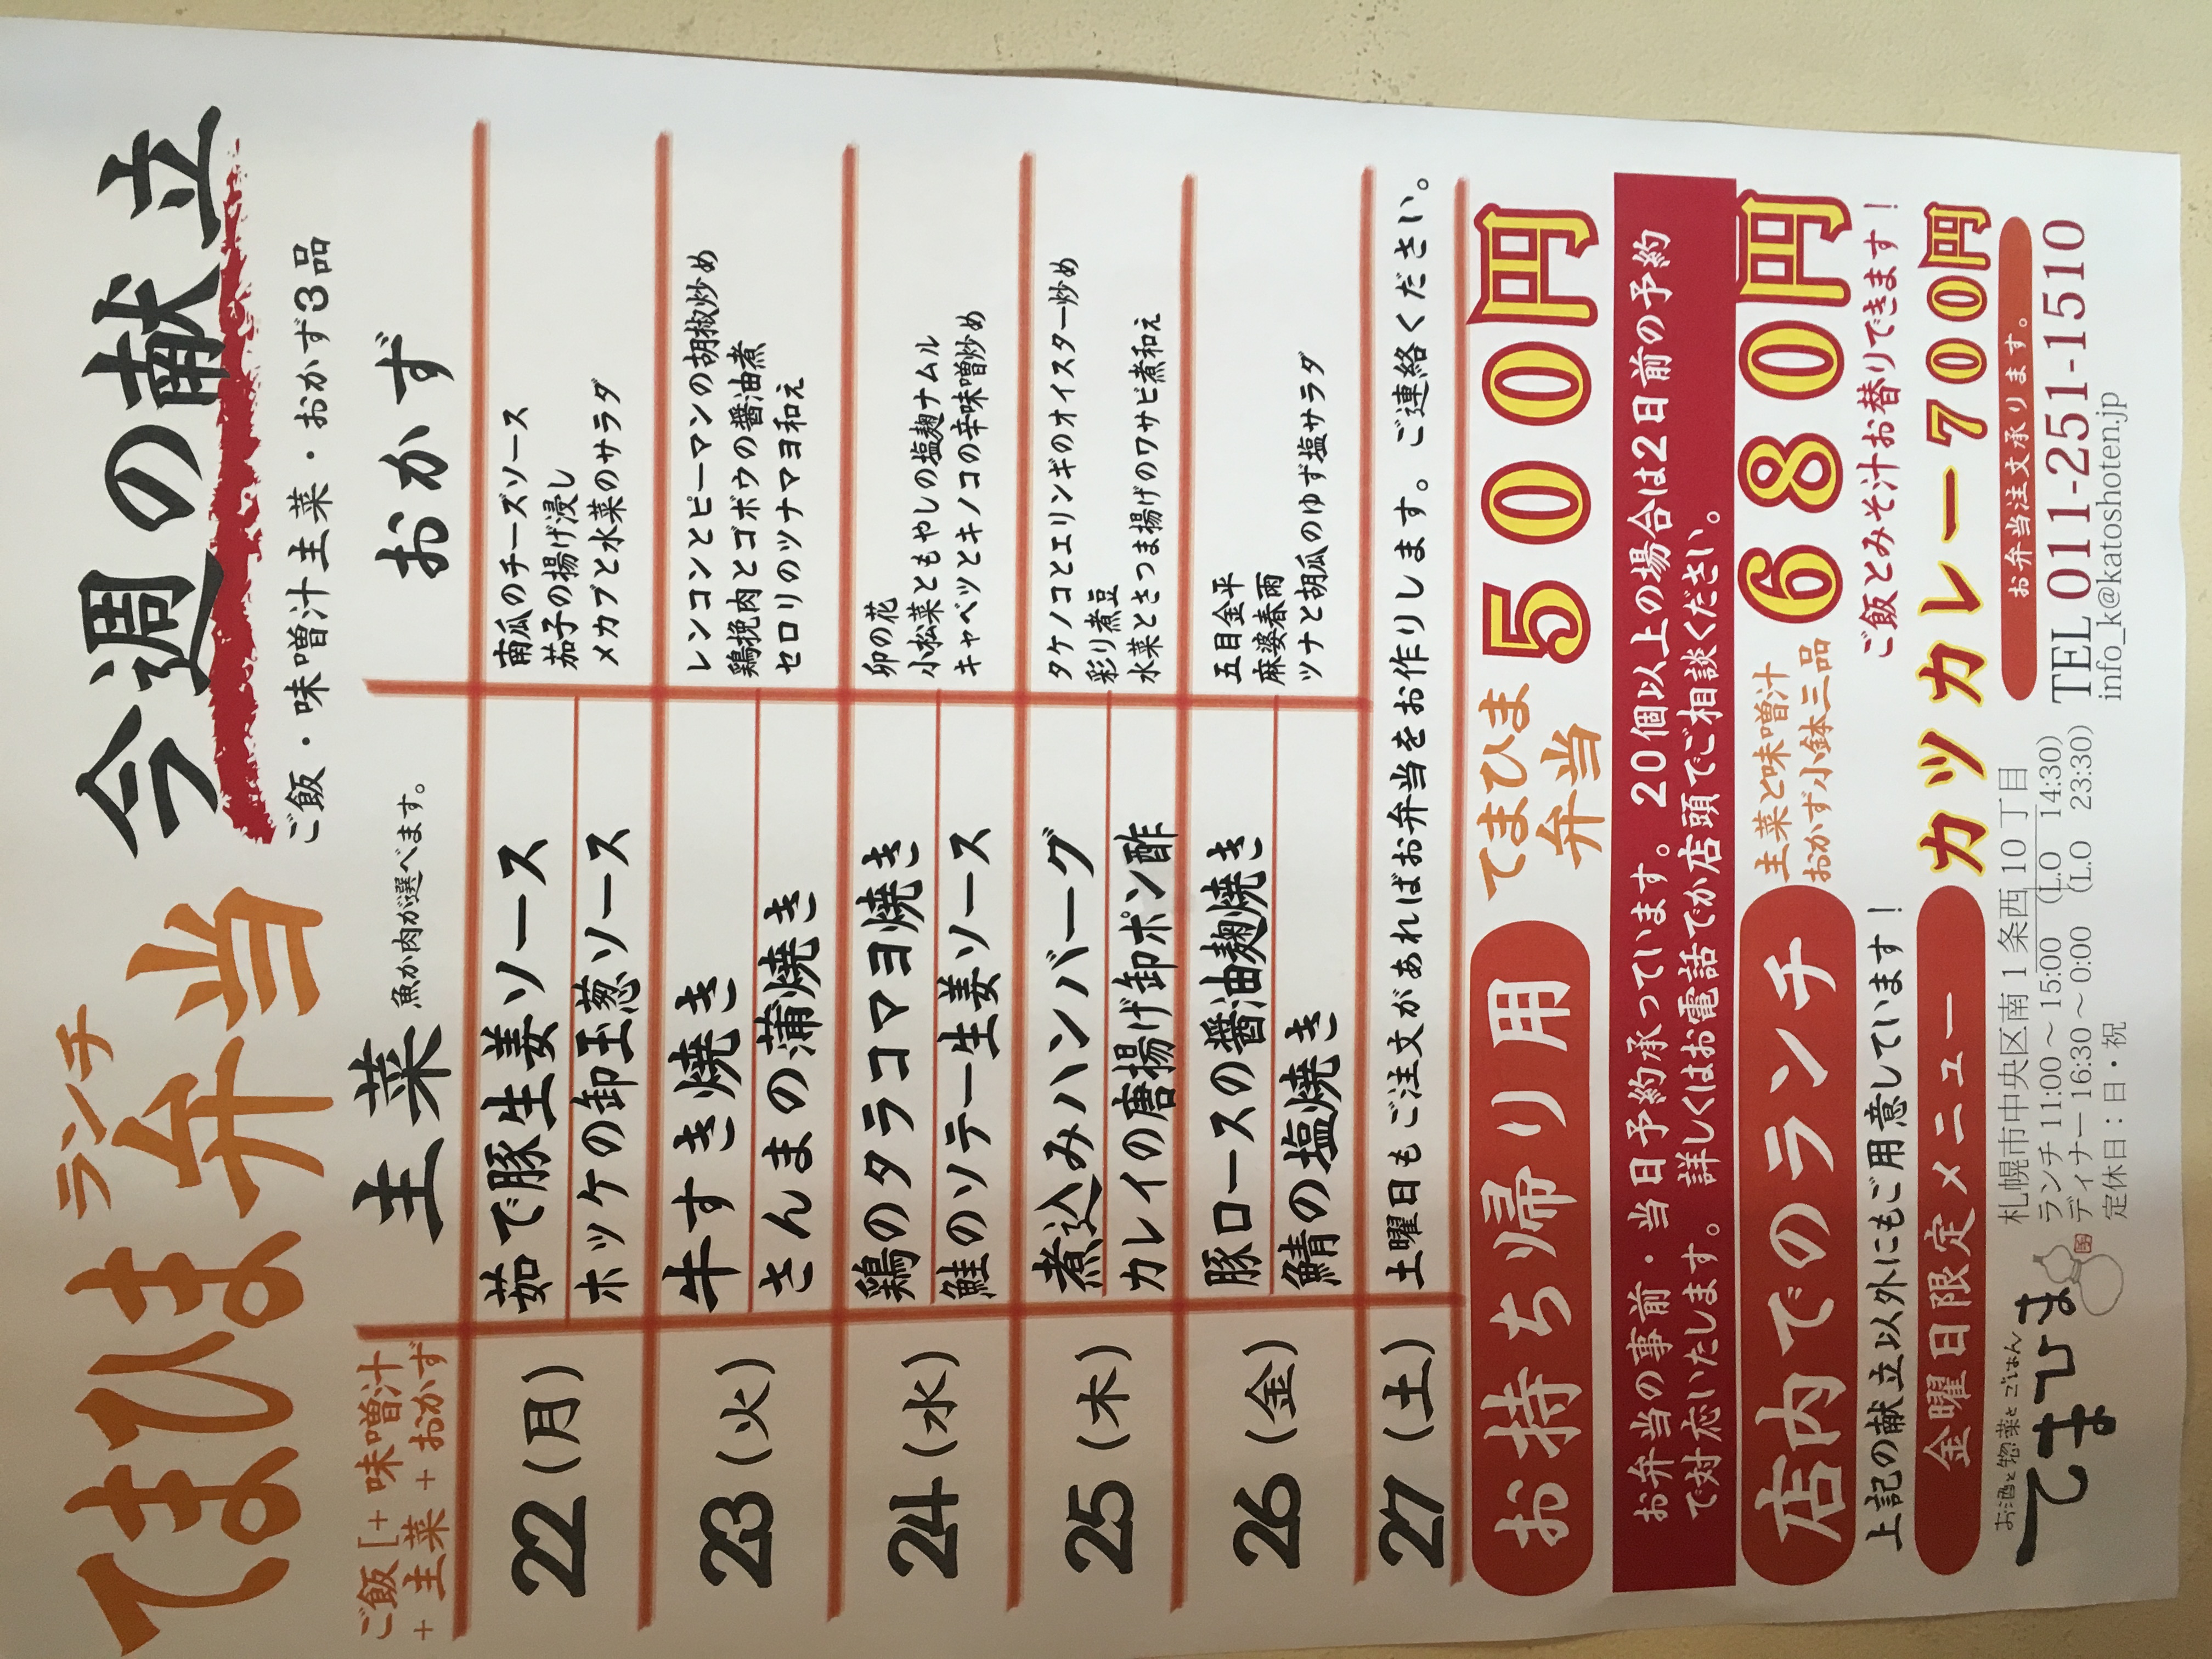 ランチ
てまひま弁当
今週の献立
ご飯・味噌汁主菜・おかず3品
ご飯[+味噌汁
+主菜+おかず
主菜 魚か肉が選べます。
おかず
22(月)
茹で豚生姜ソース
ホッケの卸玉葱ソース
南瓜のチーズソース
茄子の揚げ浸し
メカブと水菜のサラダ
23(火)
牛すき焼き
さんまの蒲焼き
レンコンとピーマンの胡椒炒め
鶏挽肉とゴボウの醤油煮
セロリのツナマヨ和え
24(水)
鶏のタラコマヨ焼き
鮭のソテー生姜ソース
卯の花
小松菜ともやしの塩麹ナムル
キャベツとキノコの辛味噌炒め
25(木)
煮込みハンバーグ
カレイの唐揚げ卸ポン酢
タケノコとエリンギのオイスター炒め
彩り煮豆
水菜とさつま揚げのワサビ煮和え
26(金)
豚ロースの醤油麹焼き
鯖の塩焼き
五目金平
麻婆春雨
ツナと胡瓜のゆず塩サラダ
27(土)
土曜日もご注文があればお弁当をお作りします。ご連絡ください。
お持ち帰り用
てまひま
弁当
500円
お弁当の事前・当日予約承っています。20個以上の場合は2日前の予約
で対応いたします。詳しくはお電話でか店頭でご相談ください。
店内でのランチ
主菜と味噌汁
おかず小鉢三品
680円
上記の献立以外にもご用意しています!
ご飯とみそ汁お替りできます!
金曜日限定メニュー
カツカレー700円
お酒と惣菜とごはん
てまひま
札幌市中央区南1条西10丁目
ランチ 11:00～15:00 (L.O 14:30)
ディナー 16:30～0:00 (L.O 23:30)
定休日:日・祝
お弁当注文承ります。
TEL 011-251-1510
info_k@katoshoten.jp